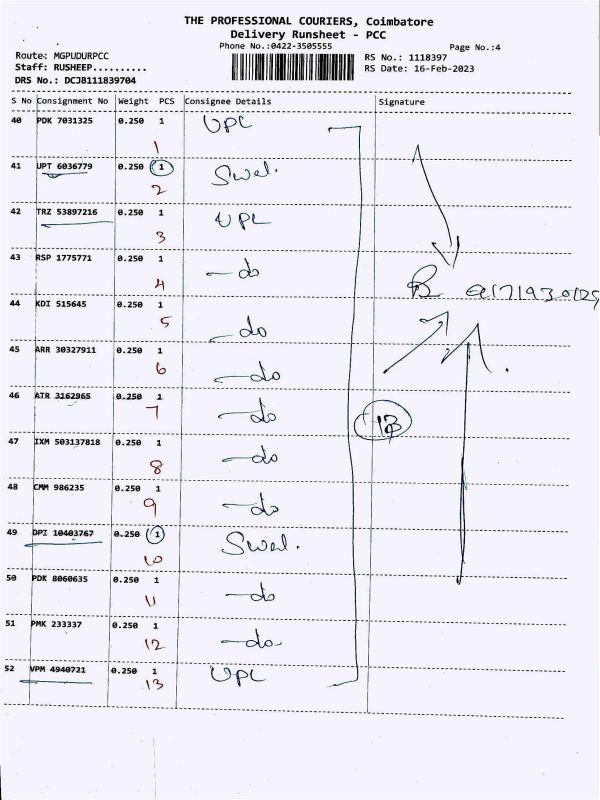 THE PROFESSIONAL COURIERS, Coimbatore
Delivery Runsheet - PCC
Phone No.:0422-3505555
Page No.:4
Route: MGPUDURPCC
RS No.: 1118397
Staff: RUSHEEP..........
RS Date: 16-Feb-2023
DRS No.: DCJB111839704
S No Consignment No Weight PCS Consignee Details Signature
40 PDK 7031325 0.250 1 UPL
1
41 UPT 6036779 0.250 1 Swal.
2
42 TRZ 53897216 0.250 1 UPL
3
43 RSP 1775771 0.250 1 -do
4
44 KDI 515645 0.250 1 -do
5
45 ARR 30327911 0.250 1 -do
6
46 ATR 3162965 0.250 1 -do
7
47 IXM 503137818 0.250 1 -do
8
48 CMM 986235 0.250 1 -do
9
49 DPI 10403767 0.250 1 Swal.
10
50 PDK 8060635 0.250 1 -do
11
51 PMK 233337 0.250 1 -do
12
52 VPM 4940721 0.250 1 UPL
13